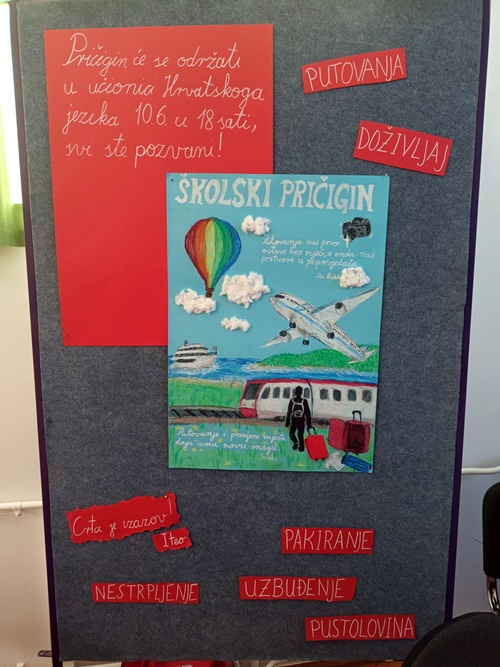 Pričigin će se održati
u učionici Hrvatskoga
jezika 10.6. u 18 sati,
svi ste pozvani!
PUTOVANJA
DOŽIVLJAJ
ŠKOLSKI PRIČIGIN
Putovanja nas prvo
ostave bez riječi, a onda nas
pretvore u pripovjedača.
Putovanje i promjena mjesta
daju umu novu snagu.
Crta je izazov!
Iteo
PAKIRANJE
NESTRPLJENJE
UZBUĐENJE
PUSTOLOVINA